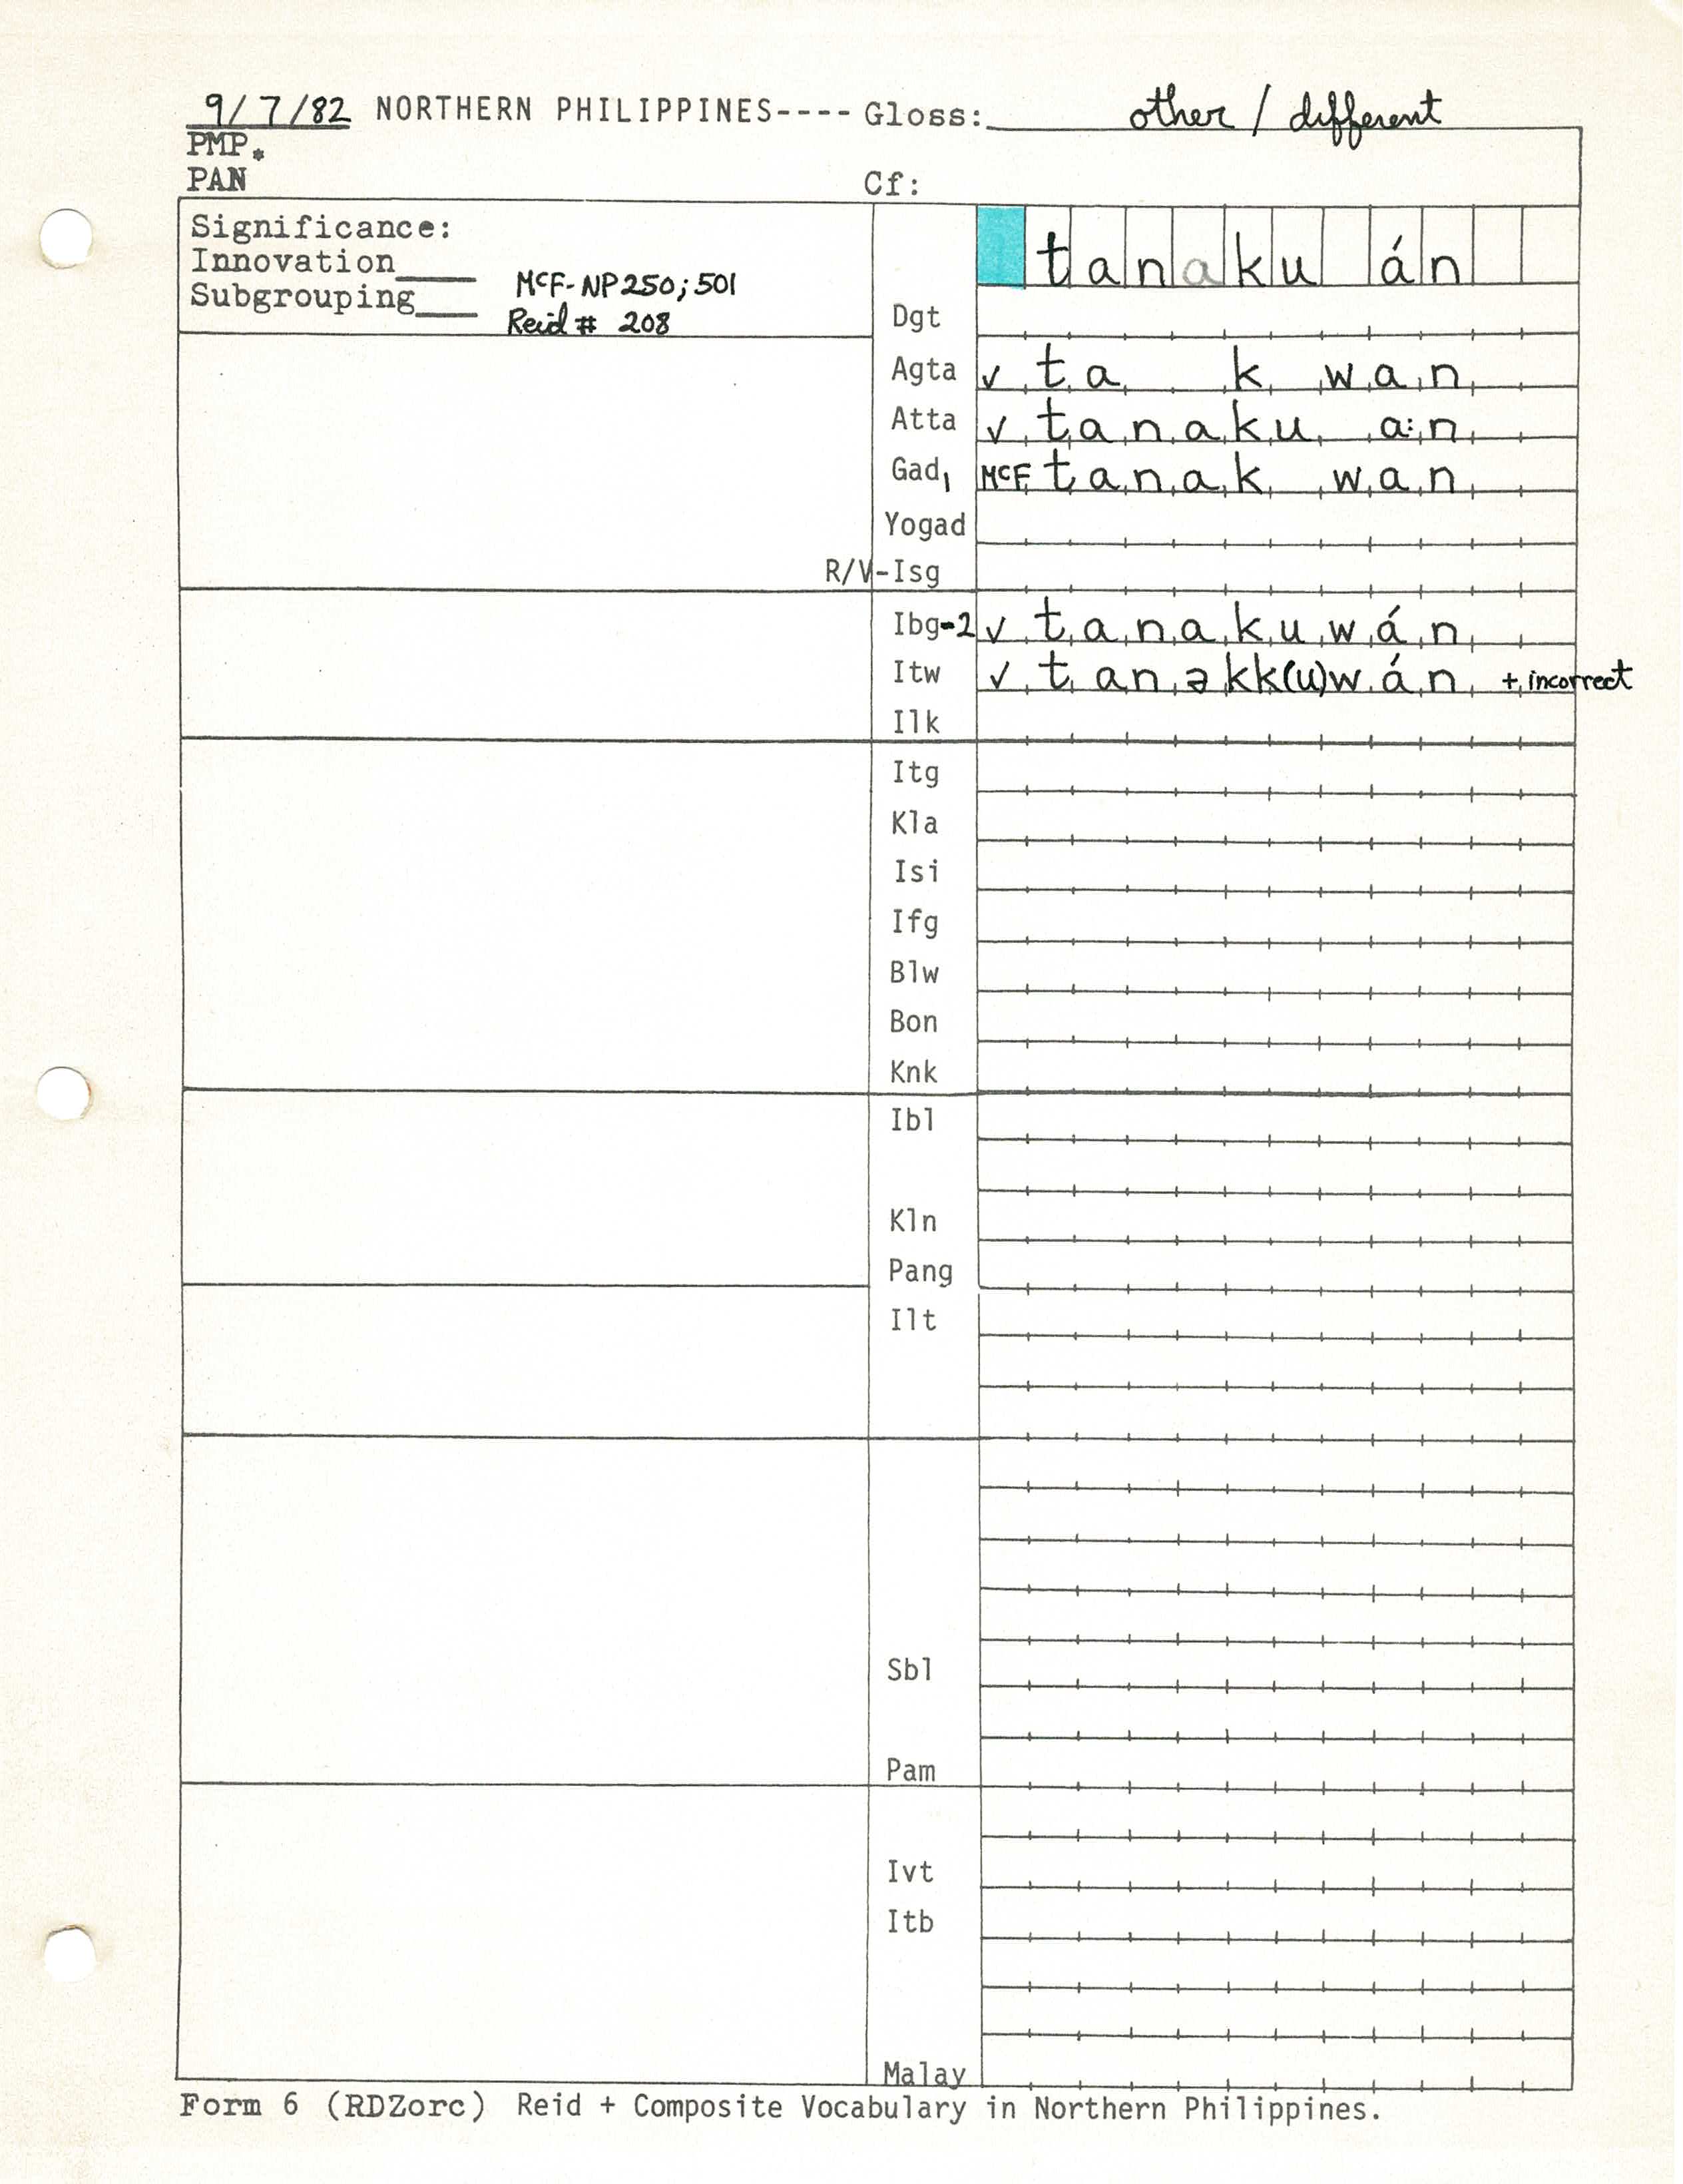 9/7/82 NORTHERN PHILIPPINES---- Gloss: other / different
PMP*
PAN Cf:
Significance:
Innovation____
Subgrouping____
McF-NP250; 501
Reid # 208
tanaku án
Dgt
Agta ✓ ta k wan
Atta ✓ tanaku a:n
Gad1 McF tanak wan
Yogad
R/V-Isg
Ibg-2 ✓ tanakuwán
Itw ✓ tanəkk(u)wán + incorrect
Ilk
Itg
Kla
Isi
Ifg
Blw
Bon
Knk
Ibl
Kln
Pang
Ilt
Sbl
Pam
Ivt
Itb
Malay
Form 6 (RDZorc) Reid + Composite Vocabulary in Northern Philippines.